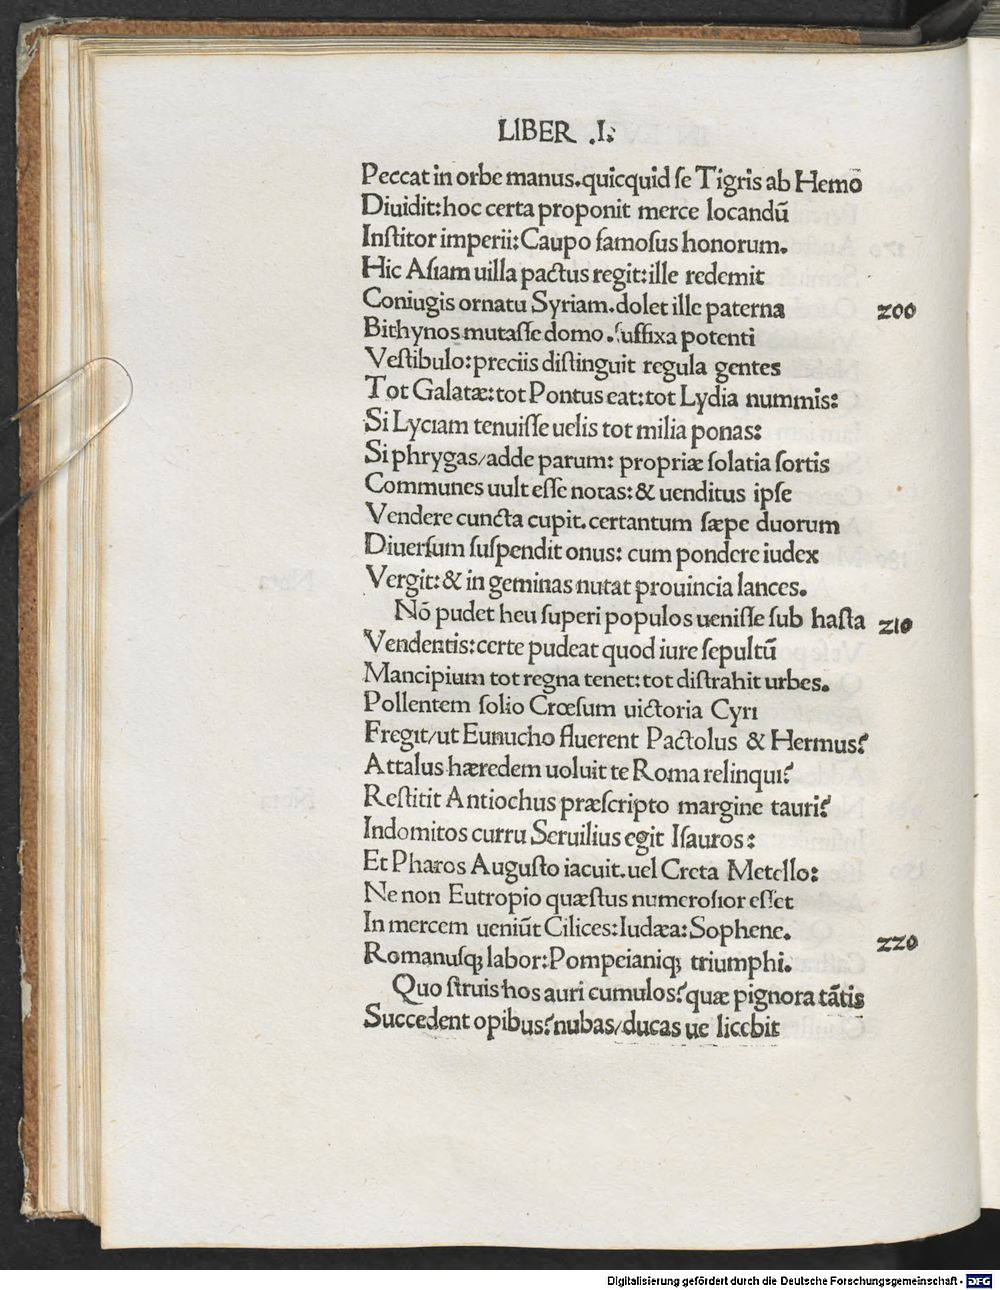 LIBER .I.
Peccat in orbe manus.quicquid se Tigris ab Hemō
Diuidit:hoc certa proponit merce locandū
Institor imperii:Caupo famosus honorum.
Hic Asiam uilla pactus regit:ille redemit
Coniugis ornatu Syriam.dolet ille paterna 200
Bithynos mutasse domo.suffixa potenti
Vestibulo:preciis distinguit regula gentes
Tot Galatæ:tot Pontus eat:tot Lydia nummis:
Si Lyciam tenuisse uelis tot milia ponas:
Si phrygas/adde parum: propriæ solatia sortis
Communes uult esse notas:& uenditus ipse
Vendere cuncta cupit.certantum sæpe duorum
Diuersum suspendit onus: cum pondere iudex
Vergit:& in geminas nutat prouincia lances.
Nō pudet heu superi populos uenisse sub hasta 210
Vendentis:certe pudeat quod iure sepultū
Mancipium tot regna tenet:tot distrahit urbes.
Pollentem solio Crœsum uictoria Cyri
Fregit/ut Eunucho fluerent Pactolus & Hermus?
Attalus hæredem uoluit te Roma relinqui?
Restitit Antiochus præscripto margine tauri?
Indomitos curru Seruilius egit Isauros:
Et Pharos Augusto iacuit.uel Creta Metello:
Ne non Eutropio quæstus numerosior esset
In mercem ueniūt Cilices:Iudæa:Sophene. 220
Romanusqꝫ labor:Pompeianiqꝫ triumphi.
Quo struis hos auri cumulos?quæ pignora tātis
Succedent opibus?nubas/ducas ue licebit
Digitalisierung gefördert durch die Deutsche Forschungsgemeinschaft - DFG